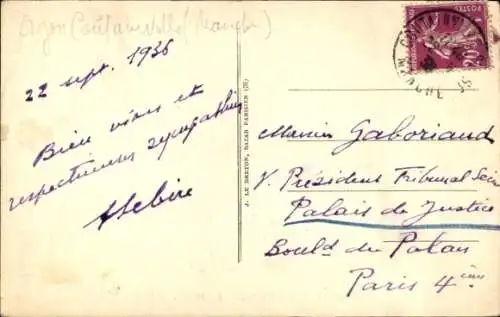 Agon Coutainville (Manche)
22 sept. 1936
Bien vives et
respectueuses sympathies
J. LE BRETON, BAZAR PARISIEN (75)
POSTES
20c
MANCHE
Monsieur Gaboriaud
V. Président Tribunal Seine
Palais de Justice
Bould du Palais
Paris 4ème